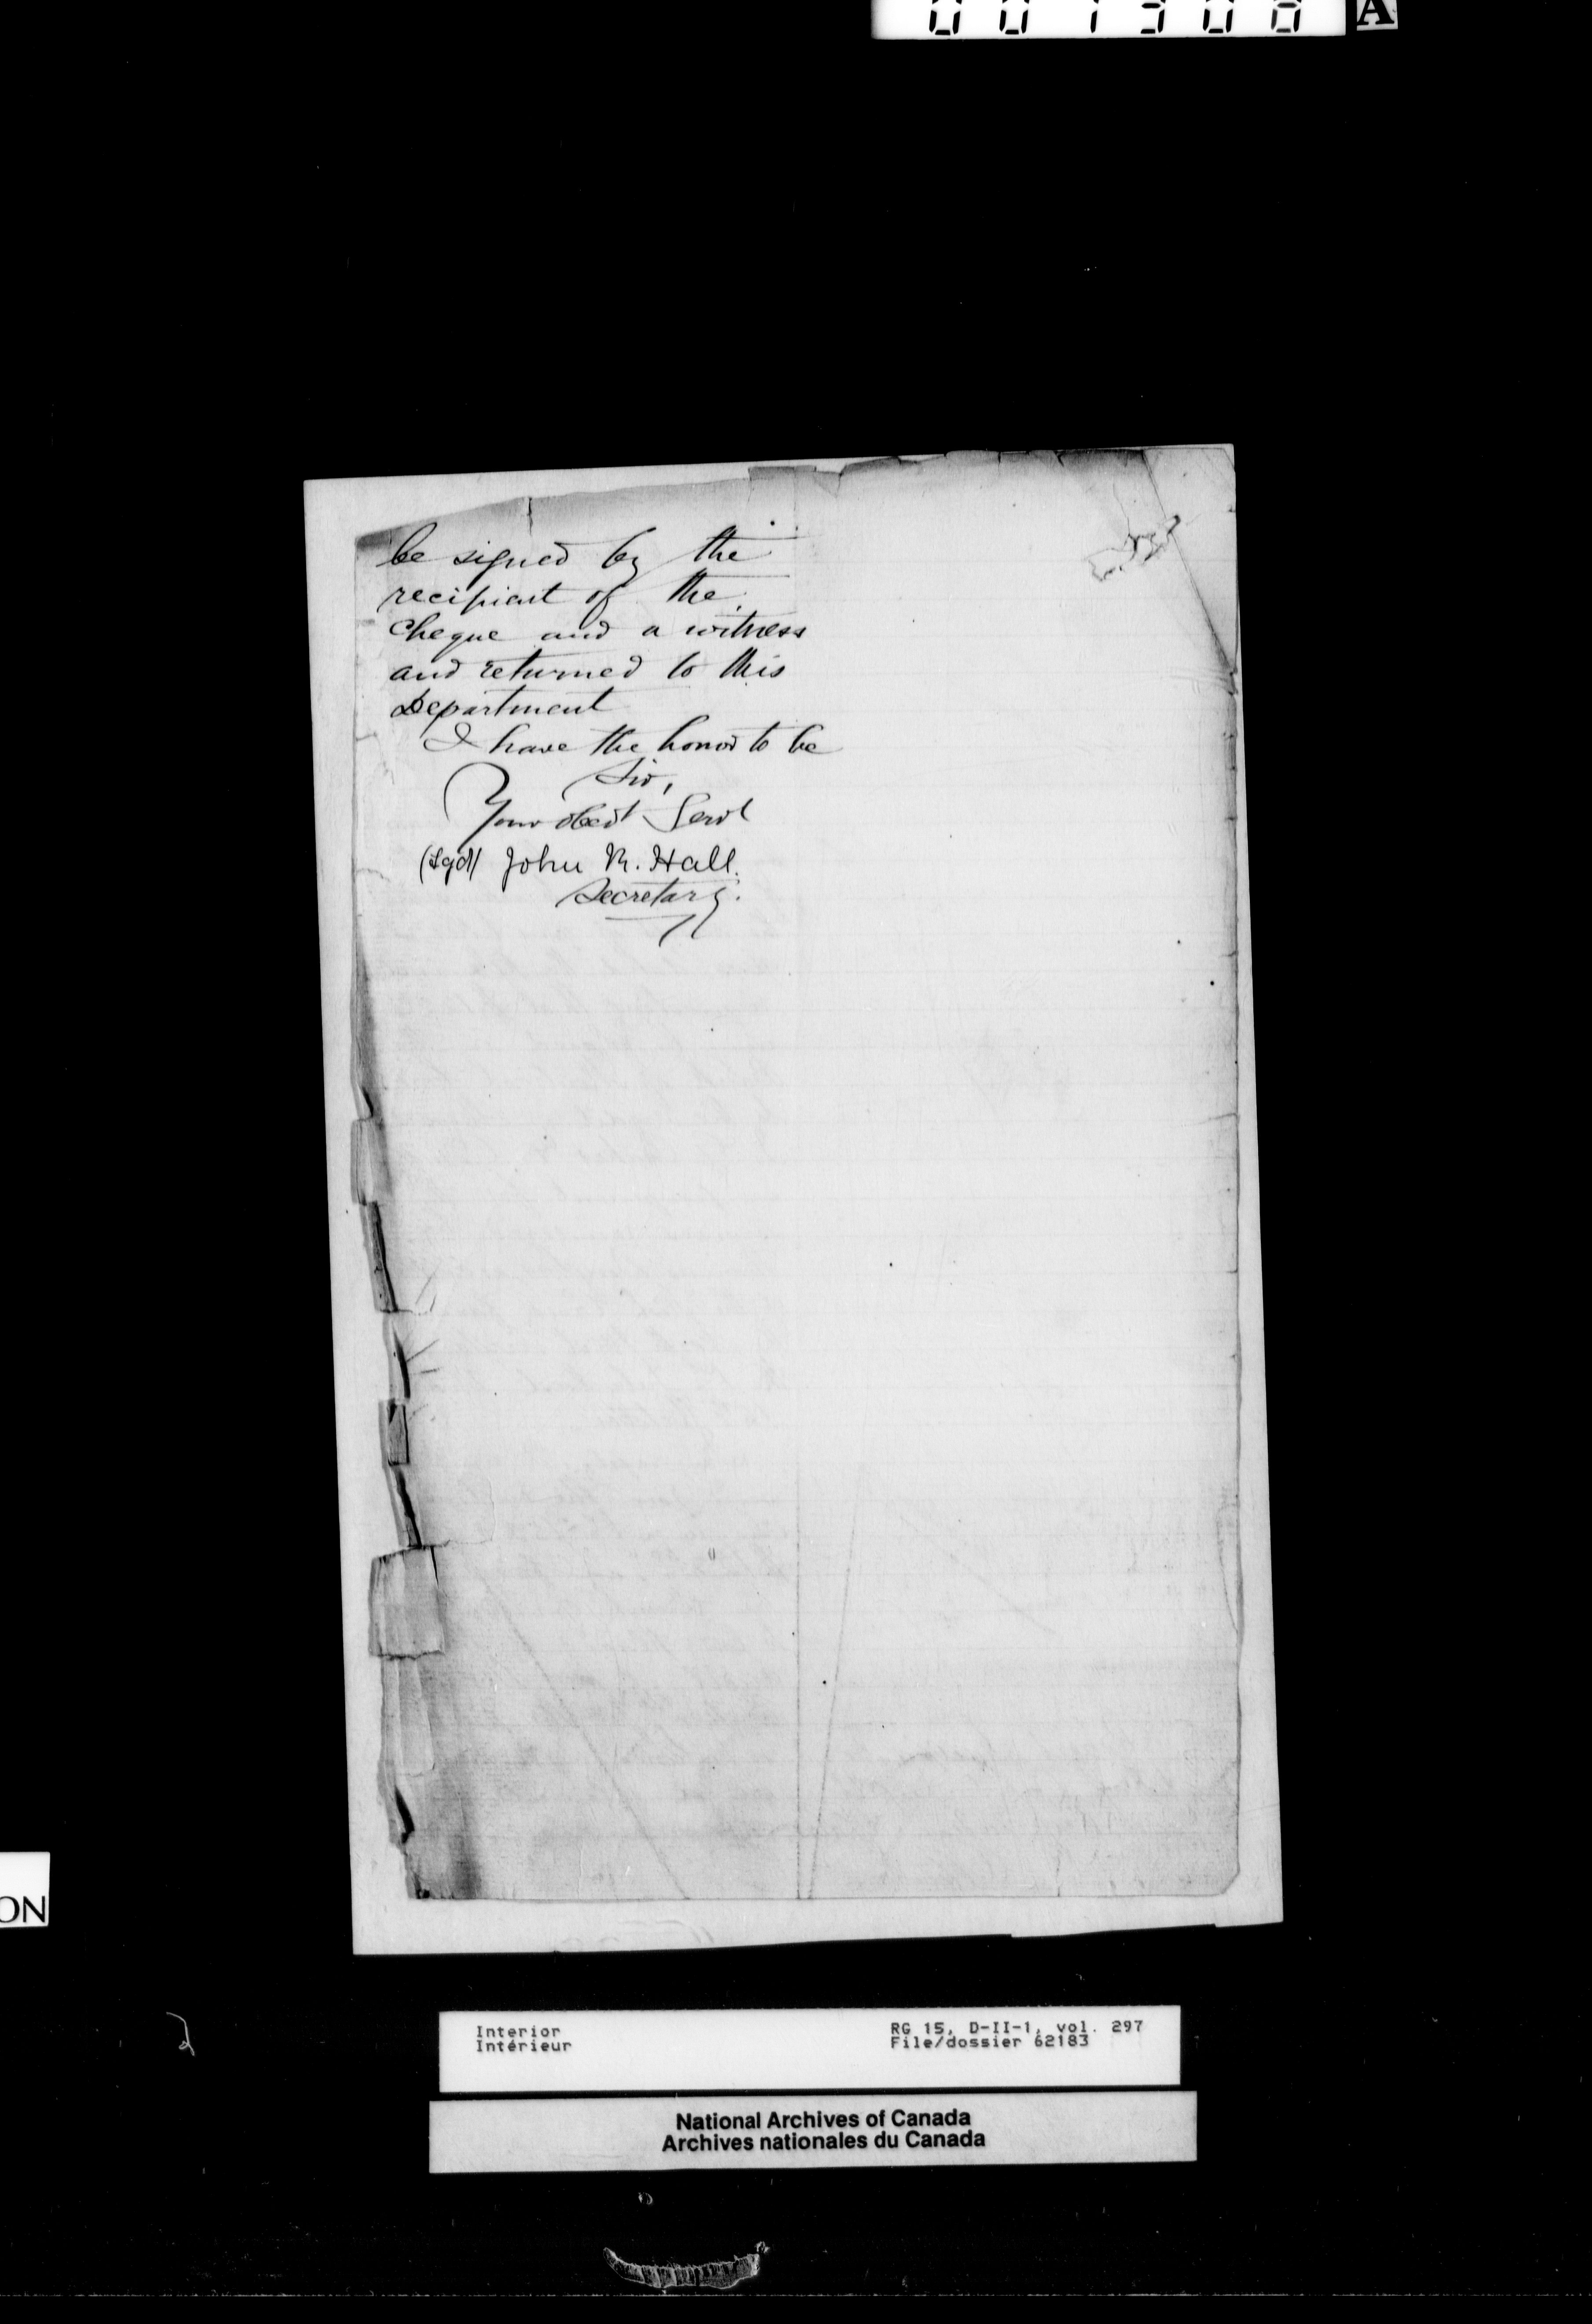 001308 A
be signed by the
recipient of the
Cheque and a witness
and returned to this
Department
I have the honor to be
Sir,
Your obedt Servt
(Sgd) John R. Hall.
Secretary.
ON
Interior
Intérieur
RG 15, D-II-1, vol. 297
File/dossier 62183
National Archives of Canada
Archives nationales du Canada